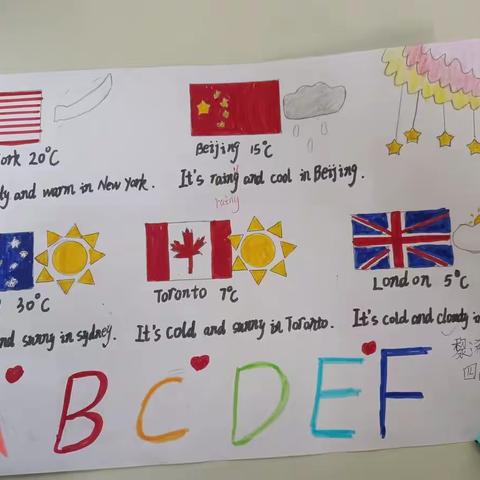 ork 20°C
Beijing 15°C
and warm in New York.
It's rainy and cool in Beijing.
rainy
30°C
Toronto 7°C
London 5°C
nd sunny in sydney.
It's cold and sunny in Toronto.
It's cold and cloudy
黎
四
B C D E F